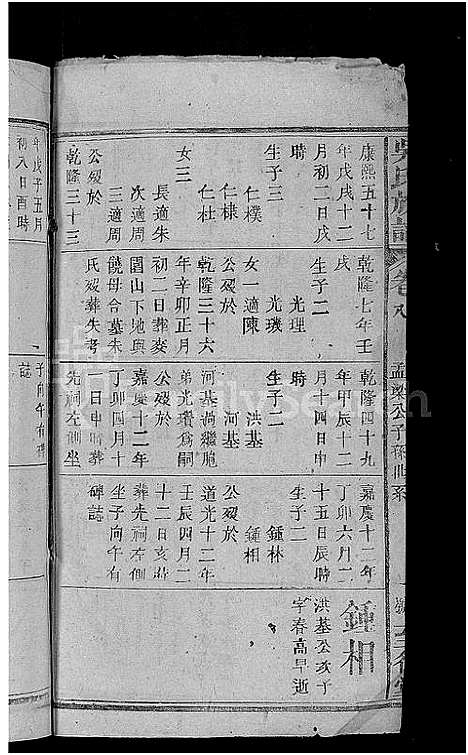 吳氏族譜
卷八
孟梁公子孫世系
康熙五十七
年戊戌十二
月初二日戌
時
生子三
仁樸
仁棣
仁杜
女三
長適朱
次適周
三適周
公歿於
乾隆三十三
乾隆七年壬
戌
生子二
光理
光璣
女一適陳
公歿於
乾隆三十六
年辛卯正月
初二日葬麥
園山下地與
饒母合墓朱
氏歿葬失考
乾隆四十九
年甲辰十二
月十四日申
時
生子二
洪基
河基
河基過繼胞
弟光瓚爲嗣
公歿於
嘉慶十二年
丁卯四月十
日申時葬
先祠左側坐
嘉慶十二年
丁卯六月二
十五日辰時
生子二
鍾林
鍾相
公歿於
道光十二年
壬辰四月二
十二日亥時
葬先祠右側
坐子向午有
碑誌
鍾相
洪基公次子
字春高早逝
年戊子五月
初八日酉時
子向午有碑
誌